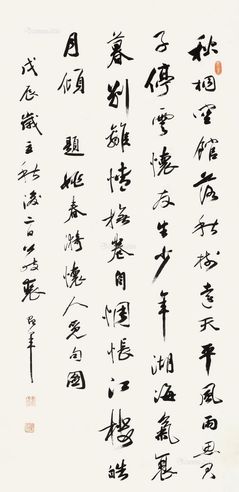 秋桐空館落秋樹遠天平風雨思君
子停雲懷友生少年湖海氣衰
暮別離情掩卷自惆悵江樓皓
月傾 題姚春漪懷人覓句圖
戊辰歲立秋後二日